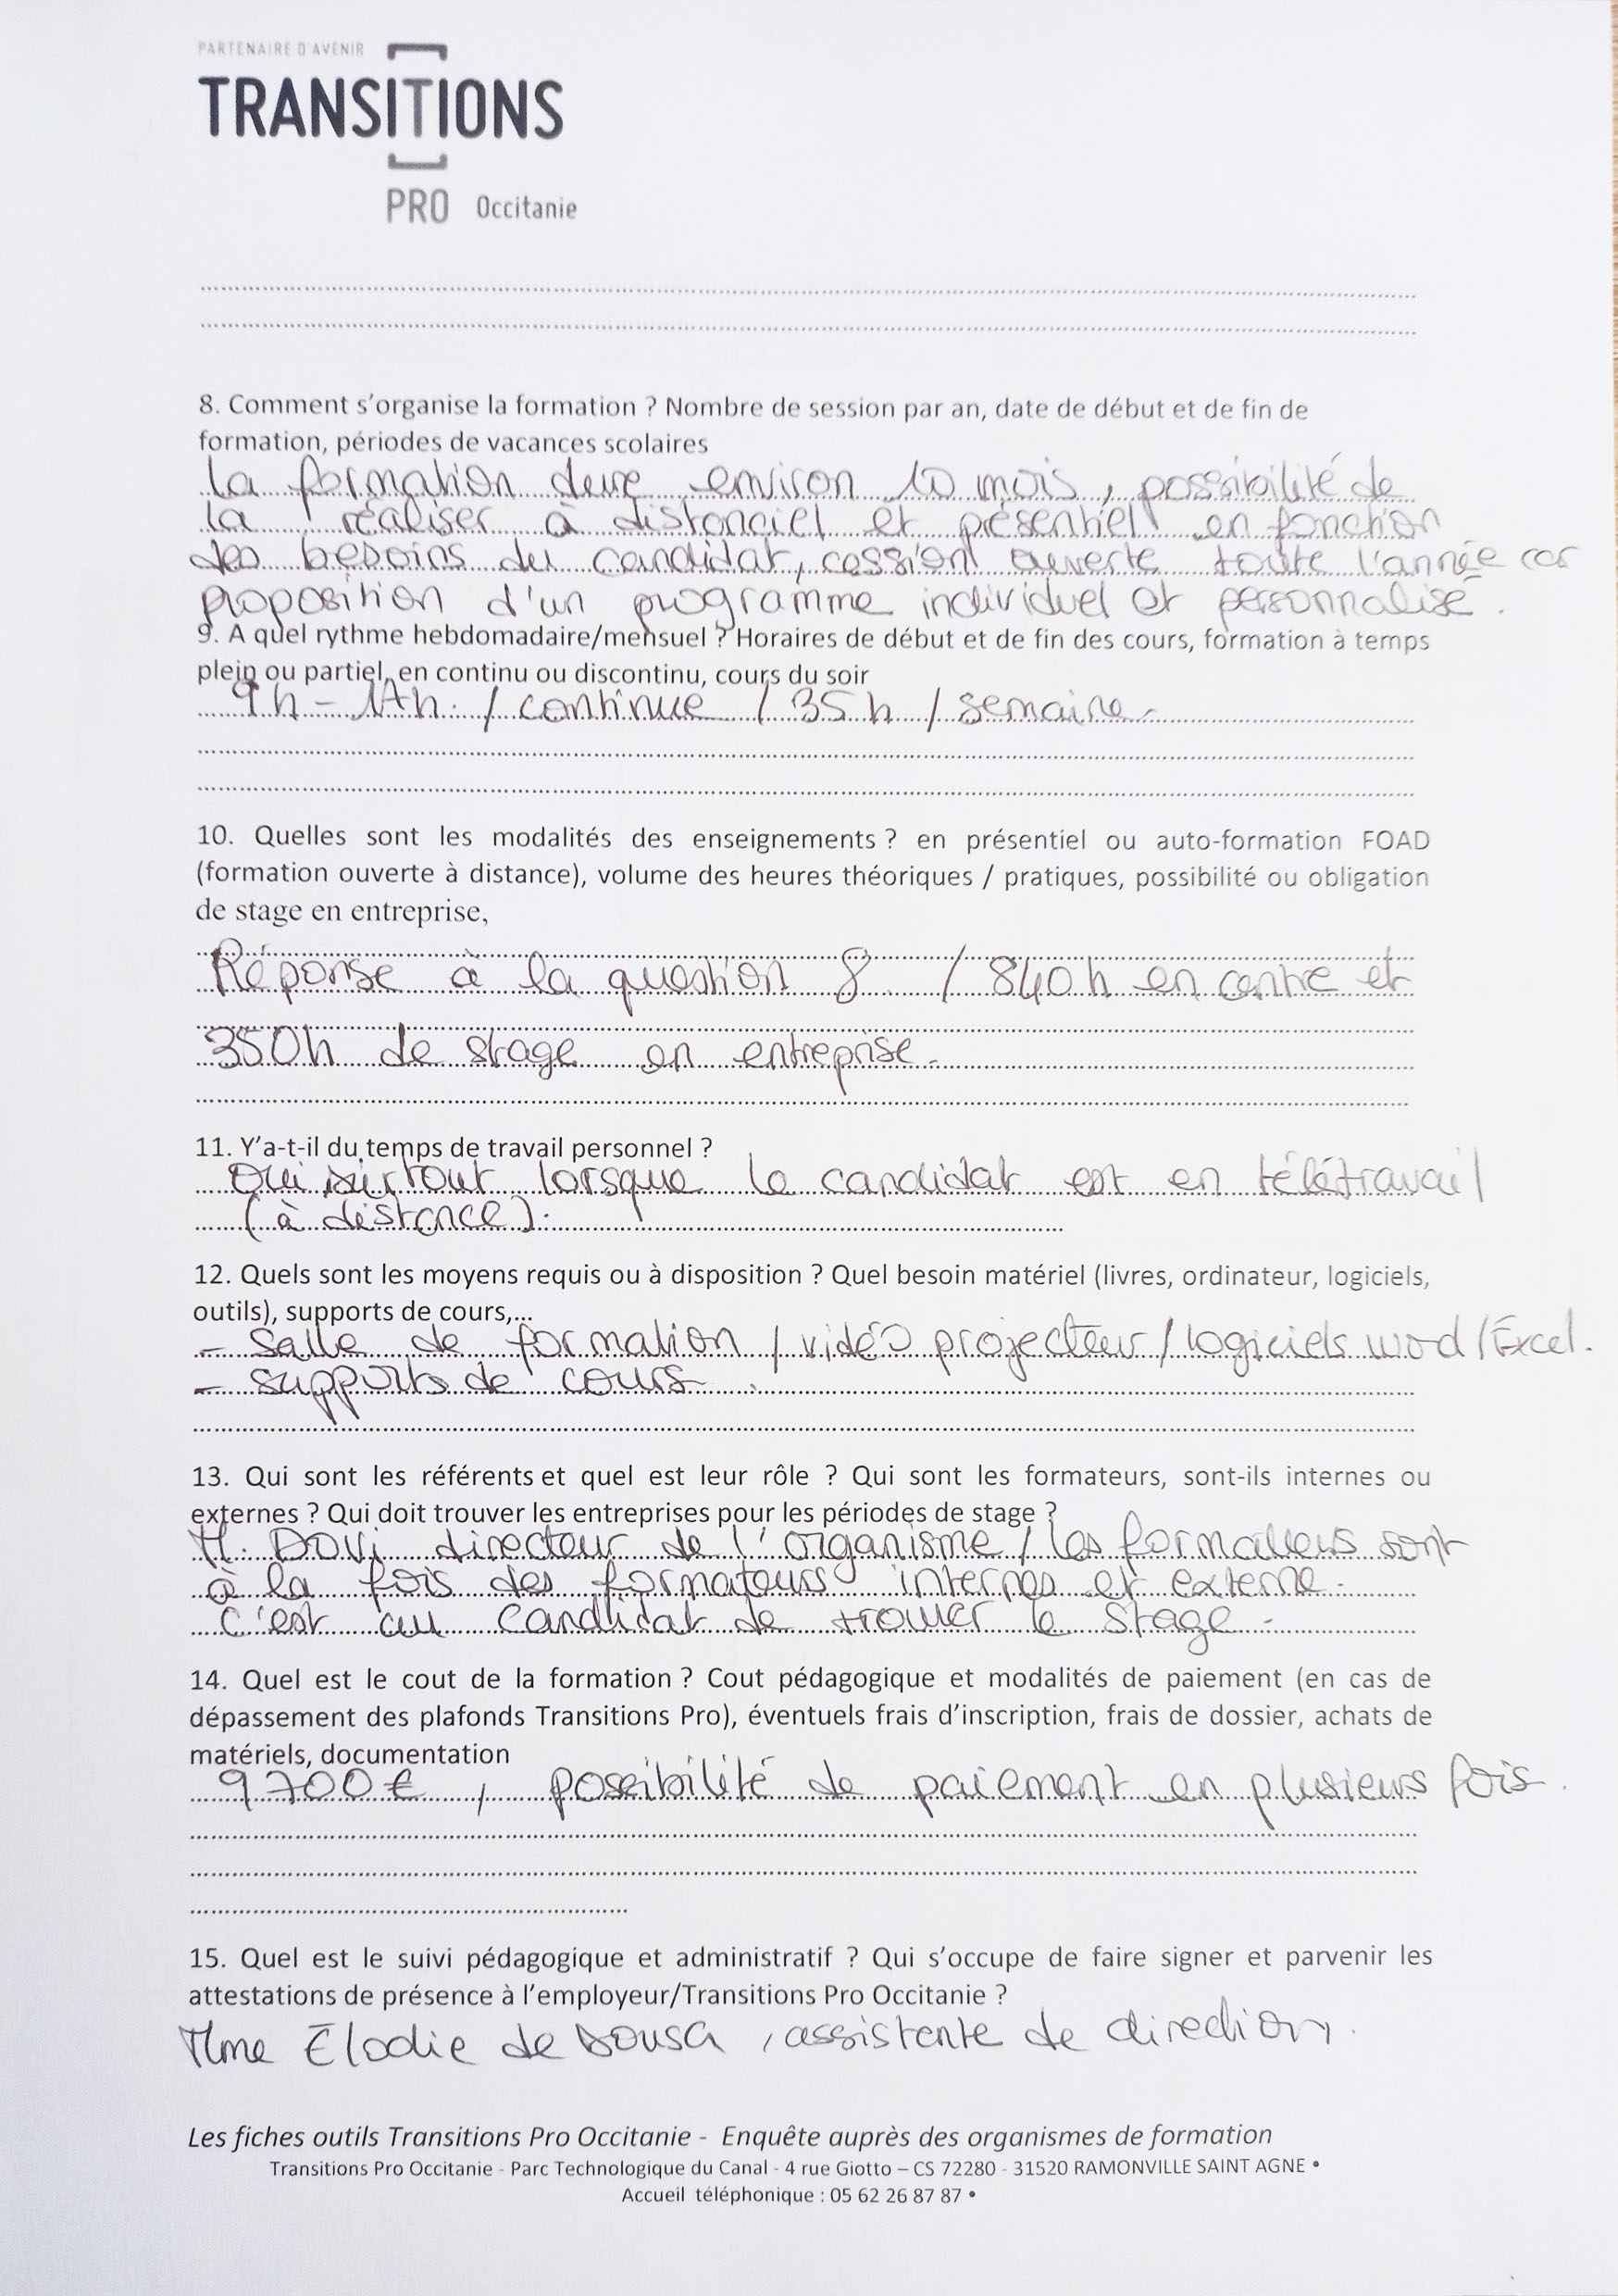 PARTENAIRE D'AVENIR
TRANSITIONS
PRO Occitanie
8. Comment s'organise la formation ? Nombre de session par an, date de début et de fin de
formation, périodes de vacances scolaires
la formation dure environ 10 mois, possibilité de
la réaliser à distanciel et présentiel en fonction
des besoins du candidat, cession ouverte toute l'année car
proposition d'un programme individuel et personnalisé.
9. A quel rythme hebdomadaire/mensuel ? Horaires de début et de fin des cours, formation à temps
plein ou partiel, en continu ou discontinu, cours du soir
9h - 17h. / continue / 35 h / semaine.
10. Quelles sont les modalités des enseignements ? en présentiel ou auto-formation FOAD
(formation ouverte à distance), volume des heures théoriques / pratiques, possibilité ou obligation
de stage en entreprise,
Réponse à la question 8. / 840 h en centre et
350h de stage en entreprise.
11. Y'a-t-il du temps de travail personnel ?
Oui surtout lorsque le candidat est en télétravail
(à distance).
12. Quels sont les moyens requis ou à disposition ? Quel besoin matériel (livres, ordinateur, logiciels,
outils), supports de cours,...
- Salle de formation / vidéo projecteur / logiciels word / Excel.
- supports de cours
13. Qui sont les référents et quel est leur rôle ? Qui sont les formateurs, sont-ils internes ou
externes ? Qui doit trouver les entreprises pour les périodes de stage ?
M. Dovi directeur de l'organisme / les formateurs sont
à la fois des formateurs internes et externe.
C'est au candidat de trouver le stage.
14. Quel est le cout de la formation ? Cout pédagogique et modalités de paiement (en cas de
dépassement des plafonds Transitions Pro), éventuels frais d'inscription, frais de dossier, achats de
matériels, documentation
9700 €, possibilité de paiement en plusieurs fois.
15. Quel est le suivi pédagogique et administratif ? Qui s'occupe de faire signer et parvenir les
attestations de présence à l'employeur/Transitions Pro Occitanie ?
Mme Élodie de Sousa, assistente de direction.
Les fiches outils Transitions Pro Occitanie - Enquête auprès des organismes de formation
Transitions Pro Occitanie - Parc Technologique du Canal - 4 rue Giotto – CS 72280 - 31520 RAMONVILLE SAINT AGNE •
Accueil téléphonique : 05 62 26 87 87 •